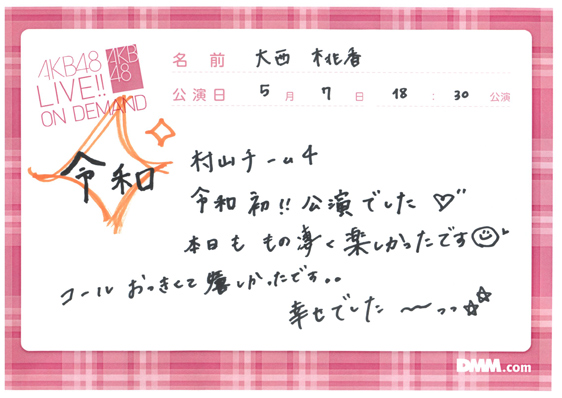 AKB48
LIVE!!
ON DEMAND
AKB
48
名前 大西 桃香
公演日 5月 7日 18:30 公演
令和
村山チーム4
令和初!!公演でした♡
本日も もの凄く楽しかったです
コール おっきくて嬉しかったです。。
幸せでした〜っっ☆☆
DMM.com